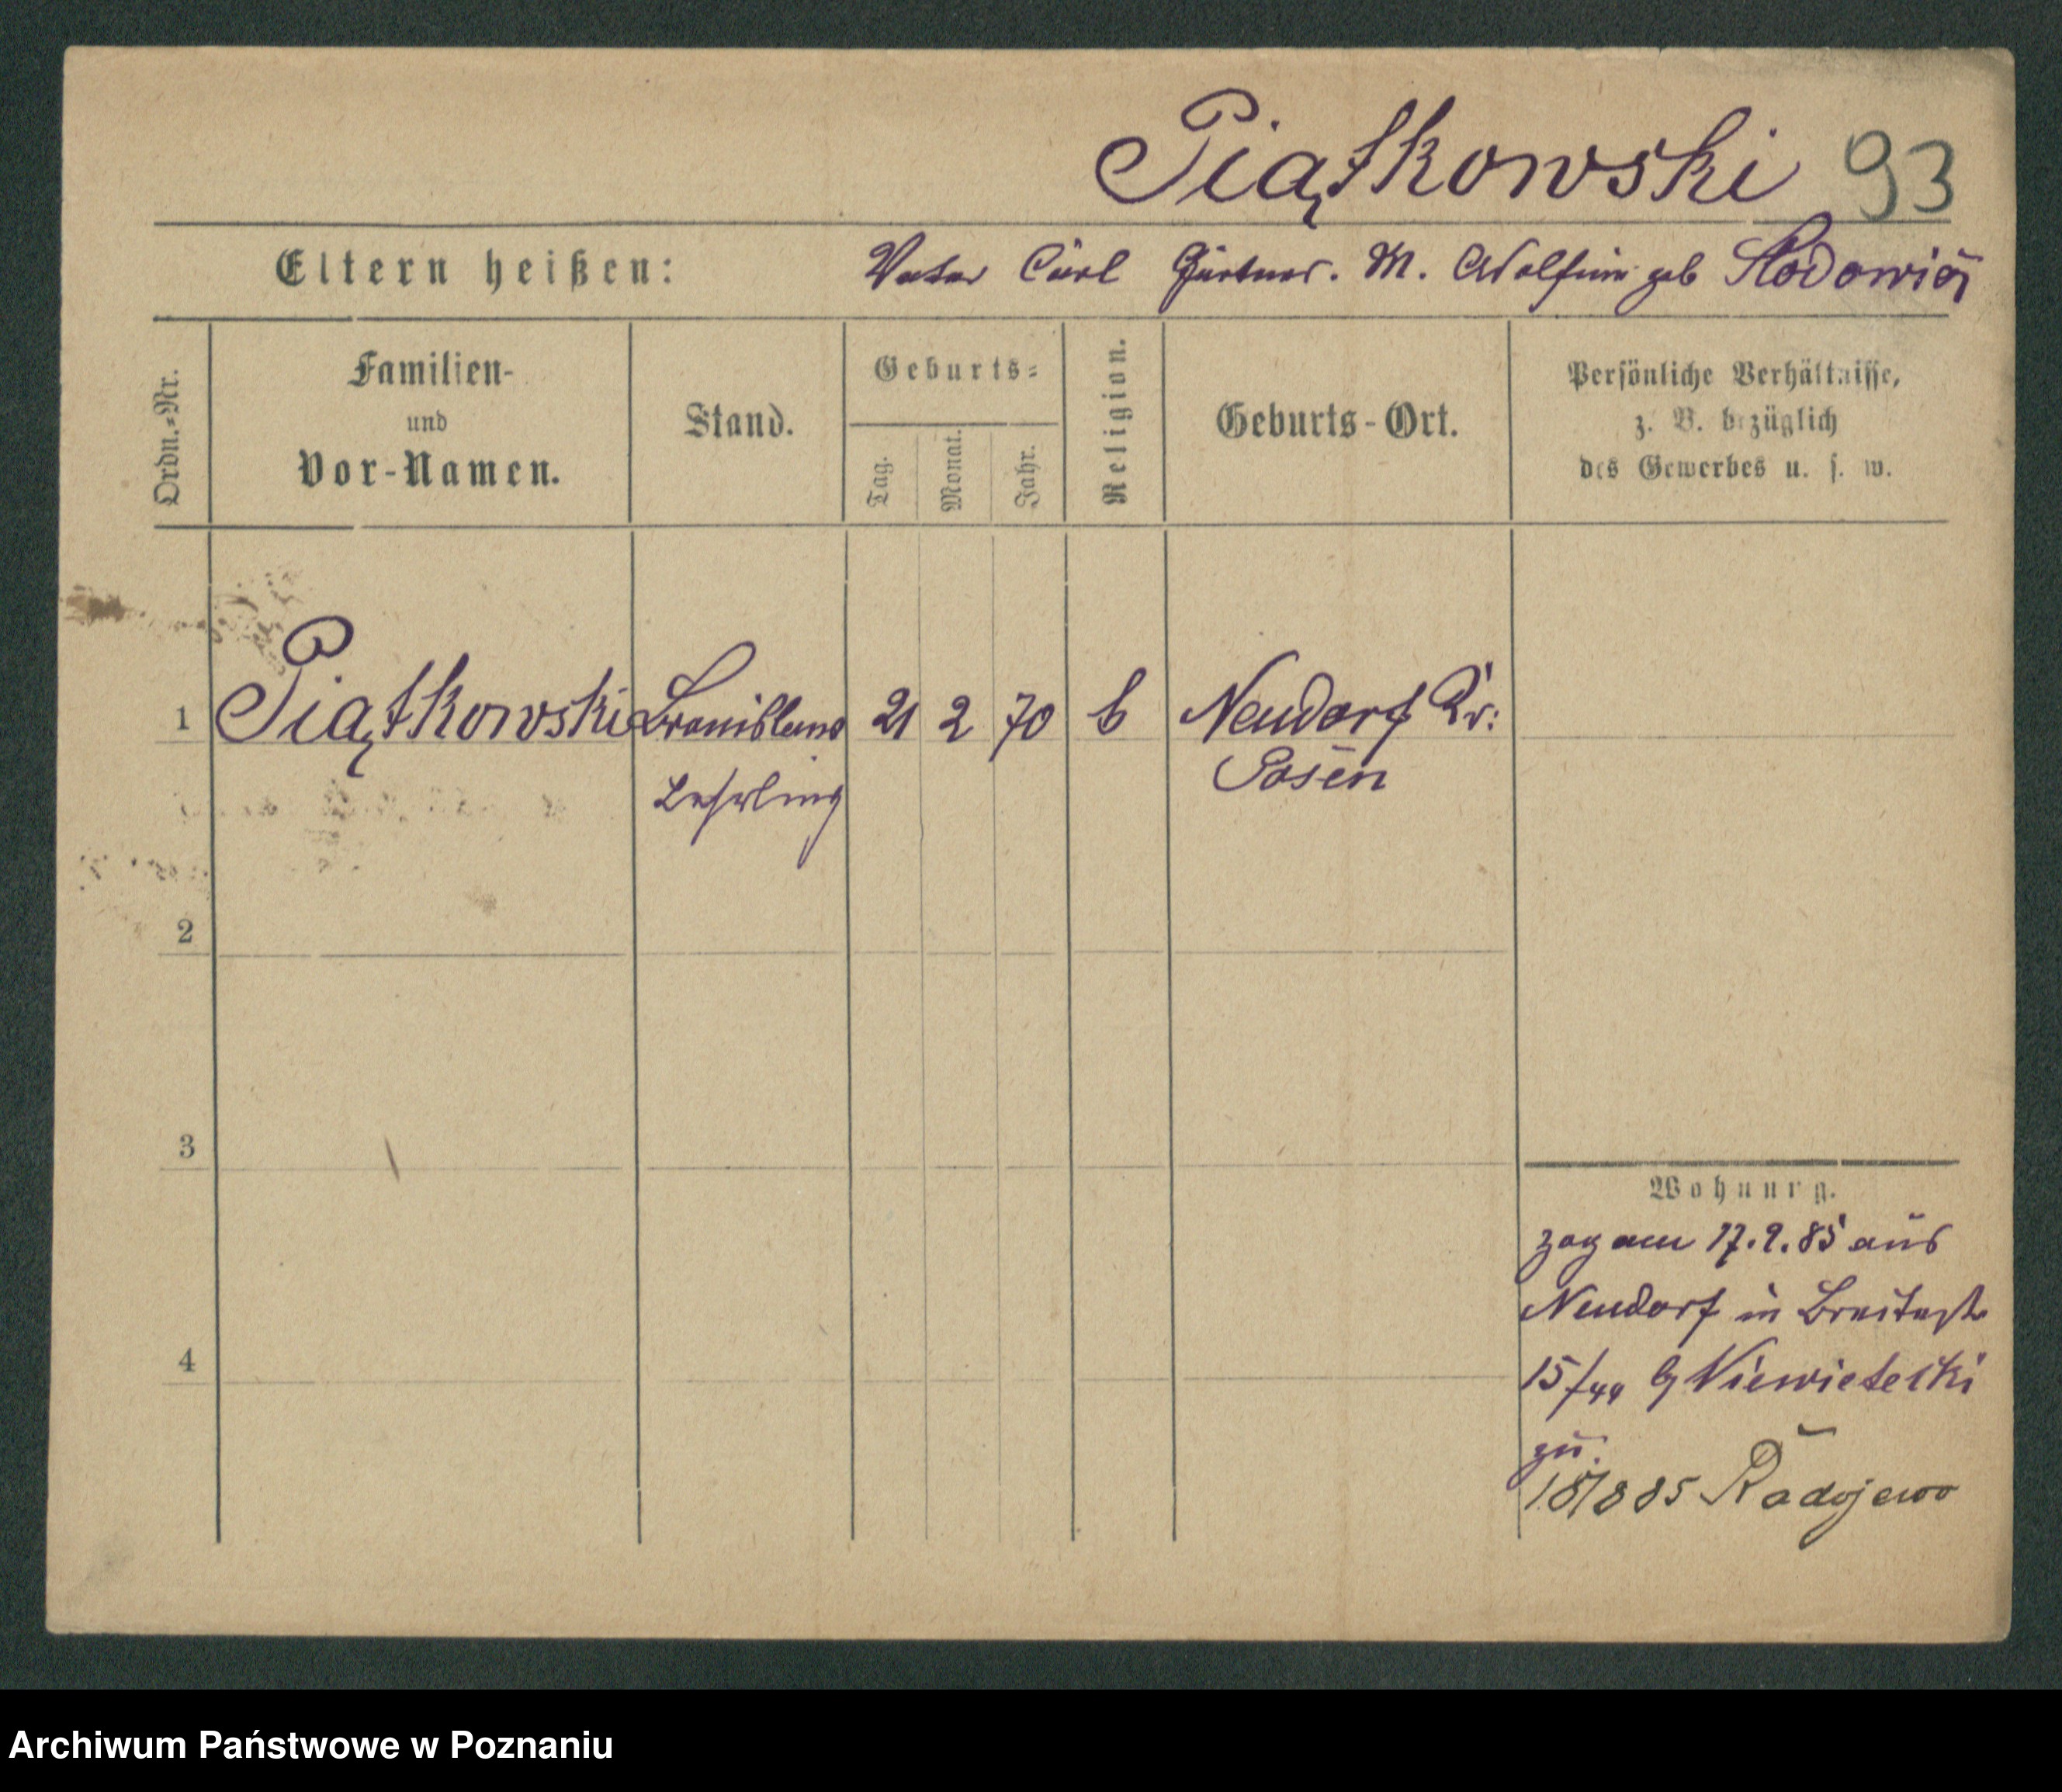 Piątkowski 93
Eltern heißen: Vater Carl Gärtner. M. geb
Ordn.-Nr.
Familien-
und
Vor-Namen.
Stand.
Geburts-
Tag.
Monat.
Jahr.
Religion.
Geburts-Ort.
Persönliche Verhältnisse,
z. B. bezüglich
des Gewerbes u. s. w.
1 Piątkowski Bronislaus 21 2 70 Neudorf Kr:
Lehrling Posen
2
3
4
Wohnung.
zog am 17.2.85 aus
Neudorf in Breitestr
15/44 Niewitecki
zu.
885 Radojewo
Archiwum Państwowe w Poznaniu